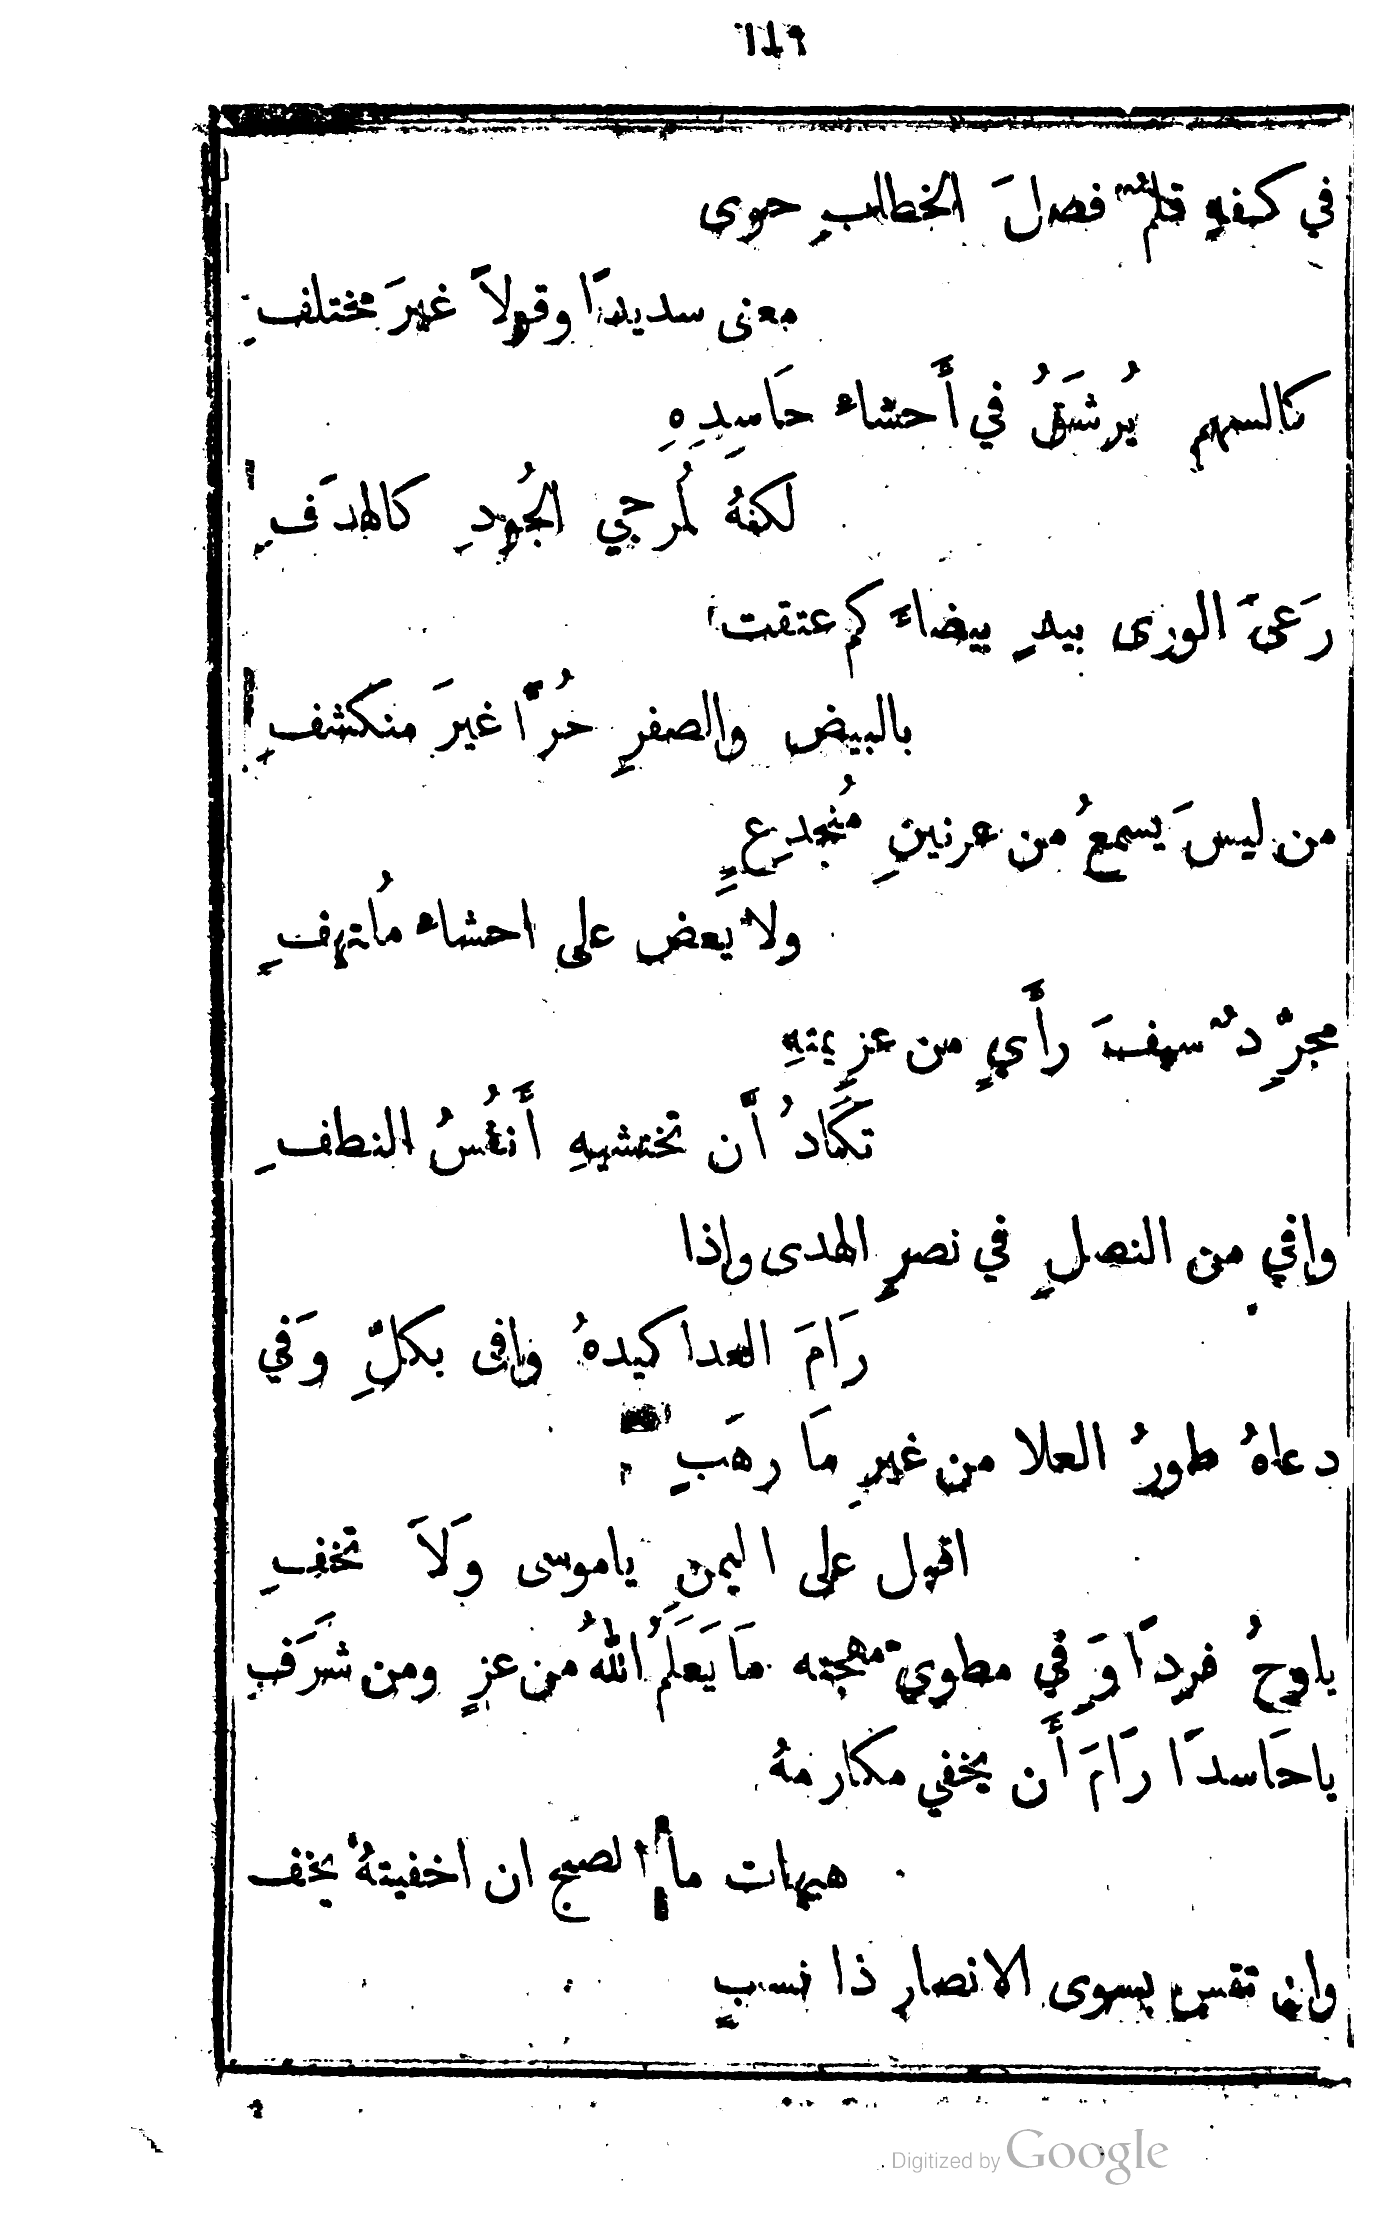 ١١٩
في كفهِ قلمٌ فصلَ الخطابِ حوى
معنى سديدًا وقولاً غيرَ مختلفِ
كالسهم يُرشَقُ في أَحشاء حَاسِدِهِ
لكفهُ لمُرجي الجُودِ كالهدَفِ
رَعىَ الورى بيدٍ بيضاءَ كم عتقت
بالبيض والصفرِ حُرًّا غيرَ منكشفِ
من ليسَ يسمعُ من عرنينِ مُنجدِعٍ
ولا يعض على احشاء مُلتهفِ
مجرِّدٌ سيفَ رأَيٍ من عزيمتهِ
تكَادُ أَن تختشيهِ أَنفُسُ النطفِ
وافي من النصلِ في نصرِ الهدى واذا
رَامَ العدا كيدهُ وافى بكلِّ وَفي
دعاهُ طورُ العلا من غيرِ مَا رهَبٍ
اقبل على اليمنِ ياموسى وَلاَ تخفِ
ياوحُ فردًا وَفي مطوي مهجته مَا يَعلَمُ اللهُ من عزٍ ومن شرَفِ
ياحَاسدًا رَامَ أَن يخفي مكارمهُ
هيهات ما الصبح ان اخفيتهُ يخف
وان تقس بسوى الانصارِ ذا نسبٍ
Digitized by Google